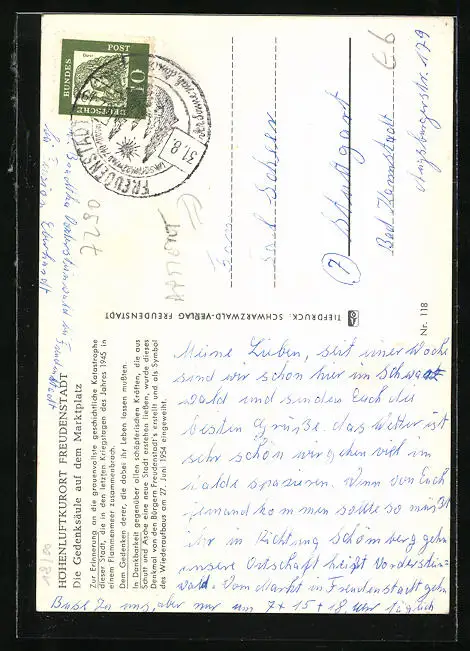 HÖHENLUFTKURORT FREUDENSTADT
Die Gedenksäule auf dem Marktplatz
Zur Erinnerung an die grauenvollste geschichtliche Katastrophe
dieser Stadt, die in den letzten Kriegstagen des Jahres 1945 in
einem Flammenmeer zusammenbrach.
Dem Gedenken derer, die dabei ihr Leben lassen mußten.
In Dankbarkeit gegenüber allen schöpferischen Kräften, die aus
Schutt und Asche eine neue Stadt erstehen ließen, wurde dieses
Denkmal von den Bürgern Freudenstadt's erstellt und als Symbol
des Wiederaufbaus am 27. Juni 1954 eingeweiht.
TIEFDRUCK: SCHWARZWALD-VERLAG FREUDENSTADT
Nr. 118
DEUTSCHE
BUNDES
POST
10
FREUDENSTADT
31.8.
0527
Stuttgart
Bad
Augsburgerstr. 179
Meine Lieben, seit einer Woche
sind wir schon hier im Schwarz
wald und senden Euch die
besten Grüße. das Wetter ist
sehr schön wir gehen viel im
Walde spazieren. Wenn von Euch
jemand kommen sollte so müßt
ihr in Richtung Schömberg gehn
unsere Ortschaft heißt Vordersteinwald. Vom Markt in Freudenstadt gehn
Busse zu uns, aber nur um 7 + 15 + 18 Uhr täglich